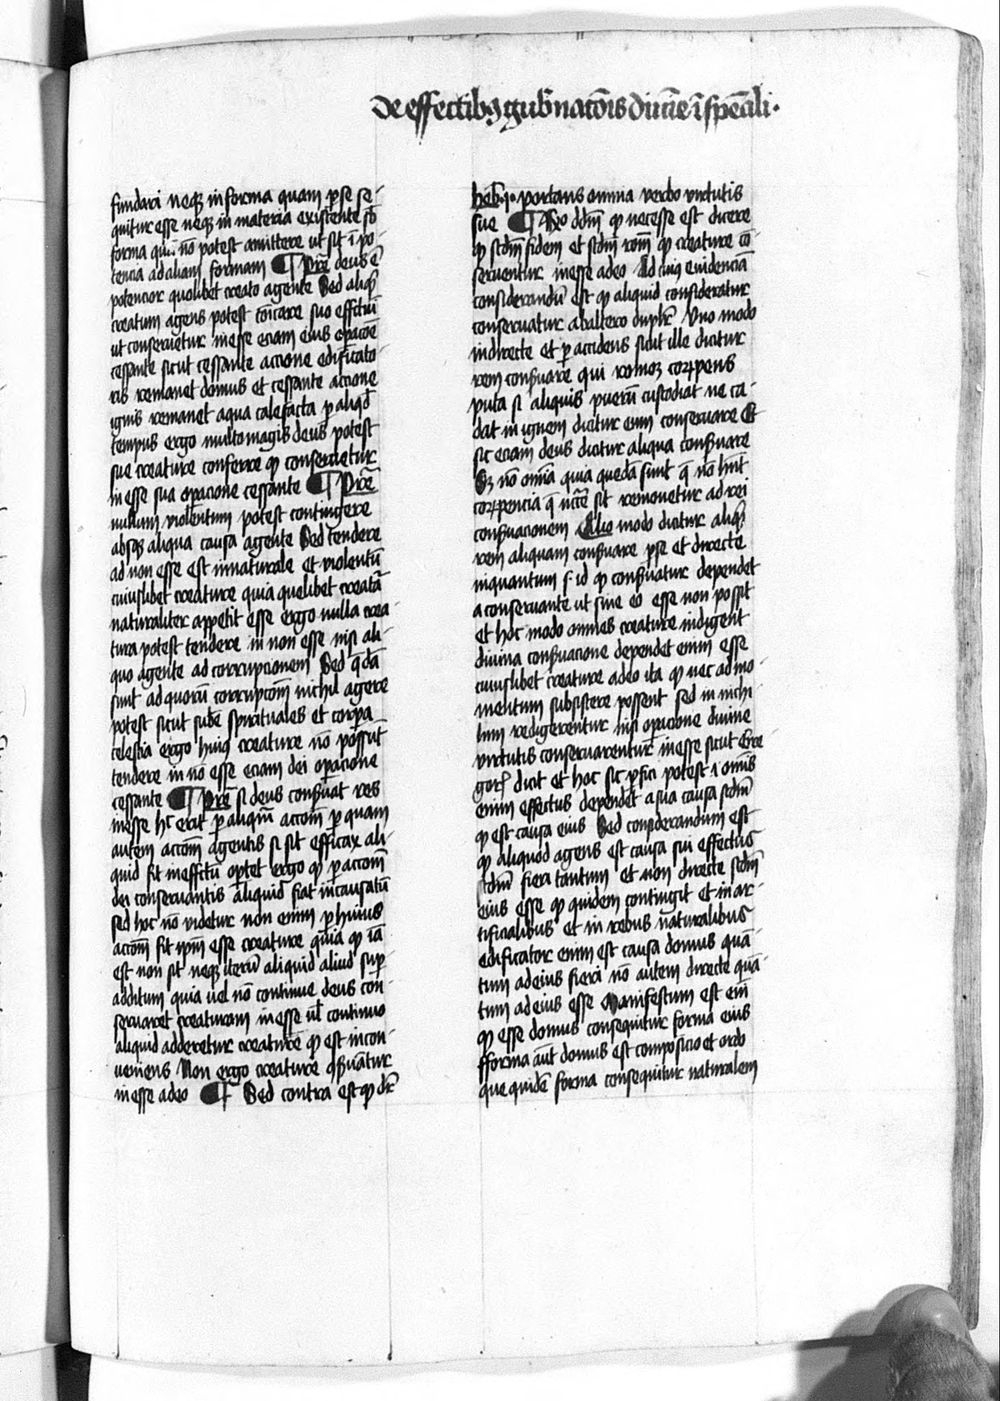 De effectibꝰ gub̄nacōis diuīe ī spēali
fundari neqꝫ in forma quam ꝑ se se-
quitur esse neqꝫ in materia existente sb̄
forma qua nō potest amittere ut sit ī po-
tencia ad aliam formam ¶ Pret̄ deus ē
potencior quolibet creato agente Sed aliqd̄
creatum agens potest cōicare suo effectui
ut conseruetur in esse eciam eius oꝑacōe
cessante sicut cessante accione edificato-
ris remanet domus et cessante accione
ignis remanet aqua calefacta ꝑ aliqd̄
tempus ergo multo magis deus potest
sue creature conferre ꝙ conseruetur
in esse sua oꝑacione cessante ¶ Pret̄
nullum violentum potest contingere
absqꝫ aliqua causa agente Sed tendere
ad non esse est innaturale et violentū
cuiuslibet creature quia quelibet creatā
naturaliter appetit esse ergo nulla crea-
tura potest tendere in non esse nisi ali-
quo agente ad corrupcionem Sed q̄dā
sunt ad quorū corrupcōem nichil agere
potest sicut sube spirituales et corpa
celestia ergo huiꝰ creature nō possunt
tendere in nō esse eciam dei oꝑacione
cessante ¶ Pret̄ si deus conẜuat res
in esse hͨ erit ꝑ aliquā accōem ꝑ quam
autem accōem agentis si sit efficax ali-
quid fit in effectu oꝑtet ergo ꝙ ꝑ accōem
dei conseruantis aliquid fiat in causatū
sed hoc nō videtur non enim ꝑ huius
accōem fit ipm̄ esse creature quia ꝙ iā
est non fit neqꝫ iterū aliquid aliud suꝑ-
additum quia uel nō continue deus con-
seruaret creaturam in esse ul̄ continuo
aliquid adderetur creature ꝙ est incon-
ueniens Non ergo creature cōẜuātur
in esse a deo ¶ Sed contra est ꝙ dr̄
heb. ꝯ. portans omnia verbo virtutis
sue ¶ Rō dōm ꝙ necesse est dicere
ꝙ scdm̄ fidem et scdm̄ rōm ꝙ creature cō-
seruentur in esse a deo Ad cuiꝰ euidenciā
considerandū est ꝙ aliquid consideratur
conseruatur ab altero duplr̄ Vno modo
indirecte et ꝑ accidens sicut ille dicitur
rem conẜuare qui remouet corrūpens
puta si aliquis puerū custodiat ne ca-
dat in ignem dicitur eum conseruare Et
sic eciam deus dicitur aliqua conẜuare
Sꝫ nō omīa quia quedā sunt q̄ nō hn̄t
corrūpencia q̄ nc̄ce sit remouetur ad rei
conẜuacionem Alio modo dicitur aliqd̄
rem aliquam conẜuare ꝑ se et directe
inquantum s. id ꝙ conẜuatur dependet
a conseruante ut sine eo esse non possit
et hoc modo omnes creature indigent
diuina conẜuacione dependet enim esse
cuiuslibet creature a deo ita ꝙ nec ad mo-
mentum subsistere possent sed in nichi-
lum redigerentur nisi oꝑacione diuine
virtutis conseruarentur in esse sicut Gre-
gori dicit et hoc sic ꝑspici potest ī omīs
enim effectus dependet a sua causa scdm̄
ꝙ est causa eius Sed considerandum est
ꝙ aliquod agens est causa sui effectus
scdm̄ fieri tantum et non directe scdm̄
eius esse ꝙ quidem contingit et in ar-
tificialibus et in rebus naturalibus
edificator enim est causa domus quā-
tum ad eius fieri nō autem directe quā-
tum ad eius esse Manifestum est em̄
ꝙ esse domus consequitur forma eius
fforma aut̄ domus est composicio et ordo
que quidē forma consequitur naturalem